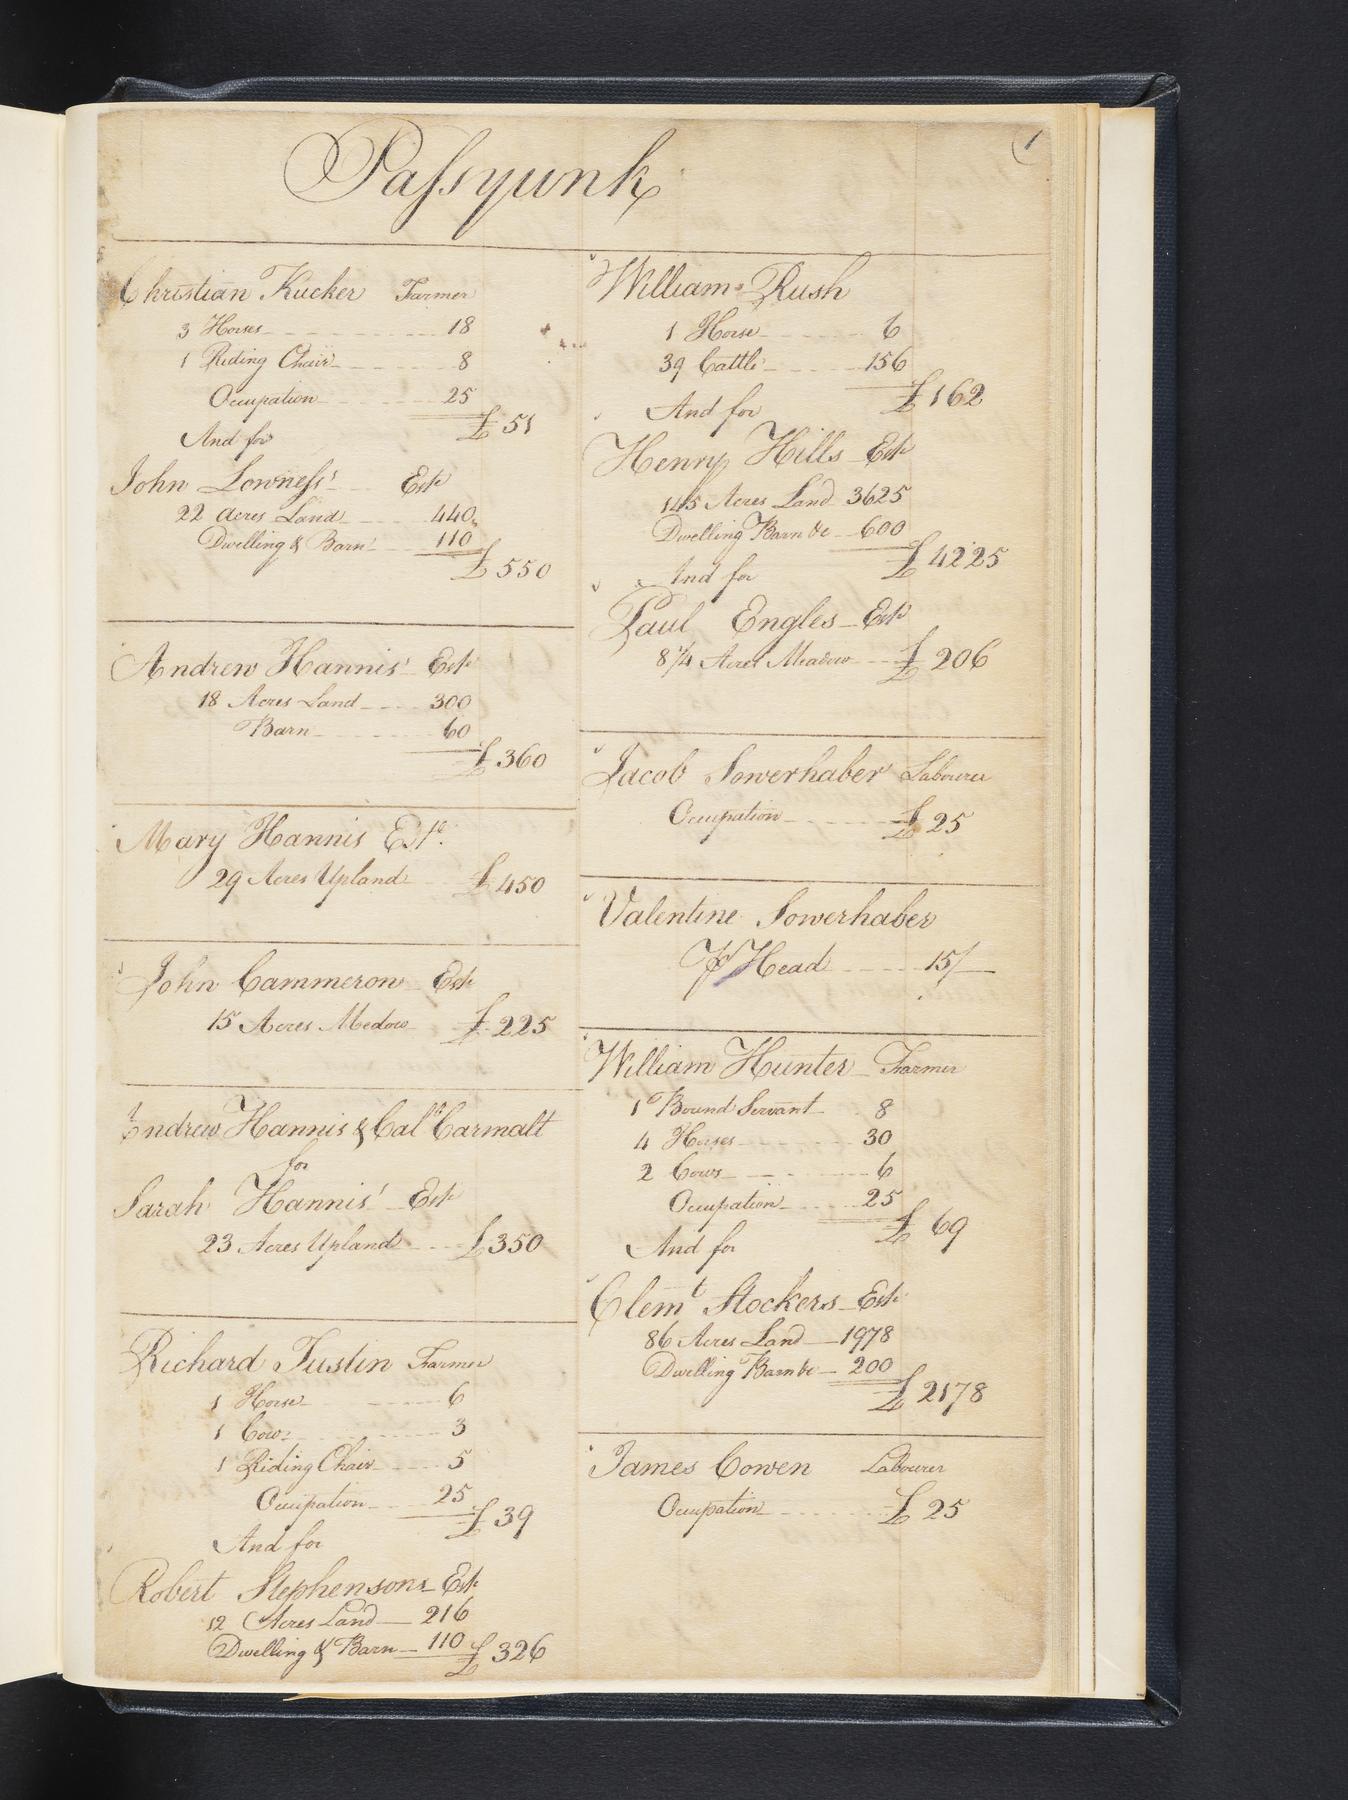 1
Passyunk
Christian Kucker Farmer
3 Horses 18
1 Riding Chair 8
Occupation 25
£ 51
And for
John Lowness' Este
22 Acres Land 440
Dwelling & Barn 110
£ 550
Andrew Hannis' Este
18 Acres Land 300
Barn 60
£ 360
Mary Hannis Este
29 Acres Upland £ 450
John Cammeron Este
15 Acres Medow £ 225
Andrew Hannis & Calb Carmalt
for
Sarah Hannis' Este
23 Acres Upland £ 350
Richard Tustin Farmer
1 Horse 6
1 Cow 3
1 Riding Chair 5
Occupation 25
£ 39
And for
Robert Stephensons Este
12 Acres Land 216
Dwelling & Barn 110
£ 326
William Rush
1 Horse 6
39 Cattle 156
£ 162
And for
Henry Hills Este
145 Acres Land 3625
Dwelling Barn &c 600
£ 4225
And for
Paul Engles Este
8 1/4 Acres Meadow £ 206
Jacob Sowerhaber Labourer
Occupation £ 25
Valentine Sowerhaber
Pr Head 15/
William Hunter Farmer
1 Bound Servant 8
4 Horses 30
2 Cows 6
Occupation 25
£ 69
And for
Clemt Stockers Este
86 Acres Land 1978
Dwelling Barn &c 200
£ 2178
James Cowen Labourer
Occupation £ 25